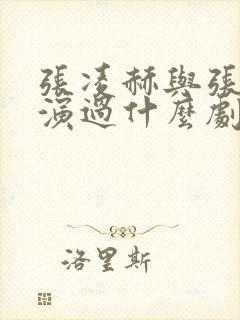 張凌赫與張
演過什麼劇
洛里斯